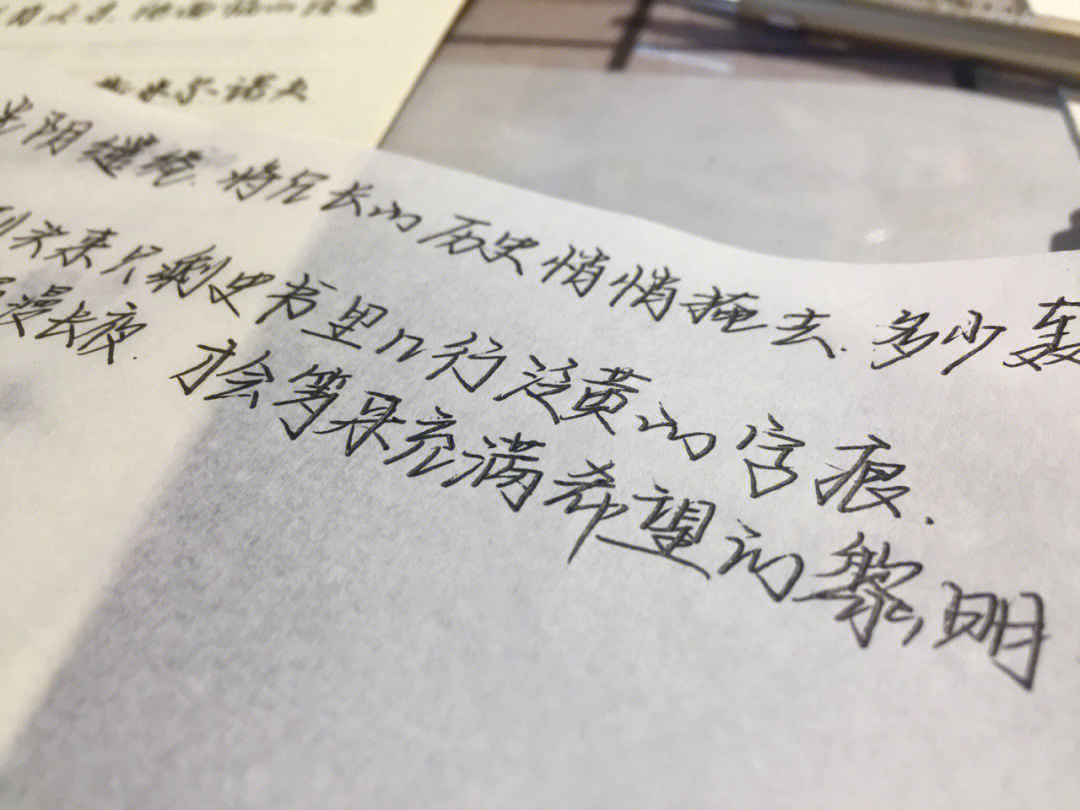 米尔诺夫
光阴缱绻.将冗长的历史悄悄掩去.多少轰
到头来只剩史书里几行泛黄的字痕.
漫长夜.才会等来充满希望的黎明.